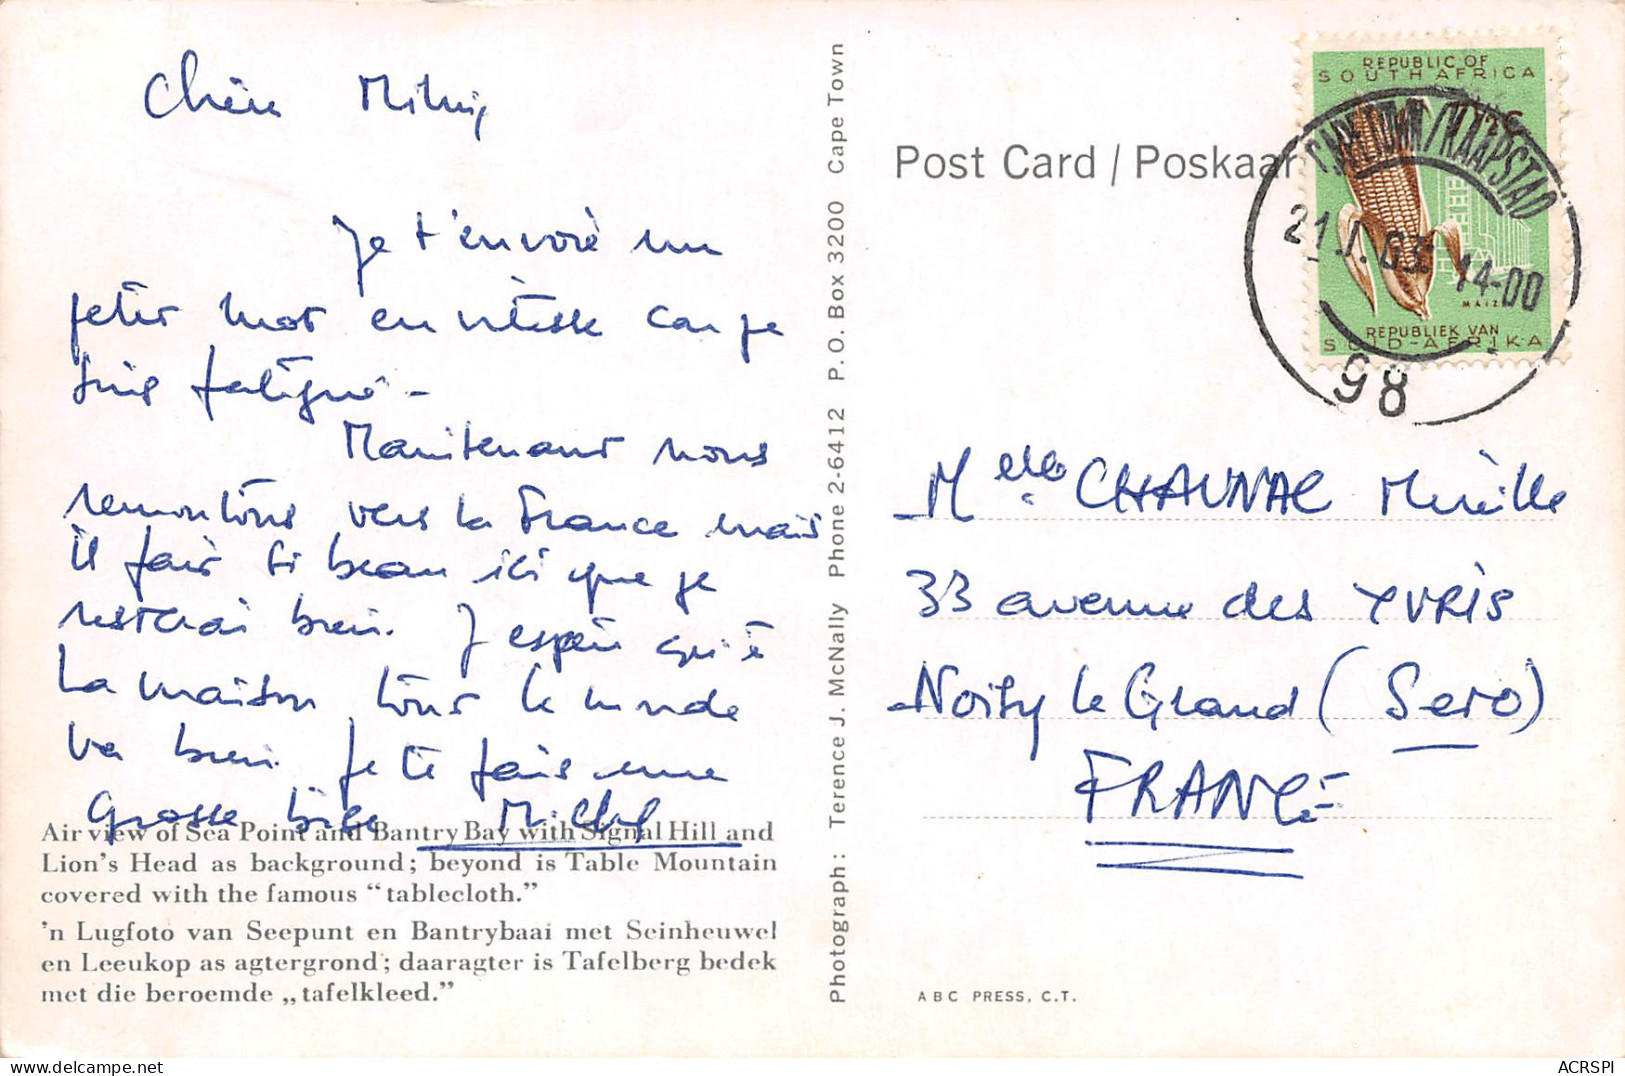 Chère
Je t'envoie un
petit mot en vitesse car je
suis fatigué -
Maintenant nous
remontons vers la France mais
il fait si beau ici que je
resterai bien. J'espère qu'à
la maison tout le monde
va bien. Je te fais une
grosse bise Michel
Air view of Sea Point and Bantry Bay with Signal Hill and
Lion's Head as background; beyond is Table Mountain
covered with the famous “tablecloth.”
'n Lugfoto van Seepunt en Bantrybaai met Seinheuwel
en Leeukop as agtergrond; daaragter is Tafelberg bedek
met die beroemde „tafelkleed.”
Photograph: Terence J. McNally Phone 2-6412 P. O. Box 3200 Cape Town
Post Card / Poskaart
REPUBLIC OF
SOUTH AFRICA
MAIZE
REPUBLIEK VAN
SUID-AFRIKA
CAPE TOWN/KAAPSTAD
21 . I . 63 14-00
98
Melle CHAUNAC Mireille
33 avenue des YVRIS
Noisy le Grand (S et O)
FRANCE
ABC PRESS, C.T.
ACRSPI